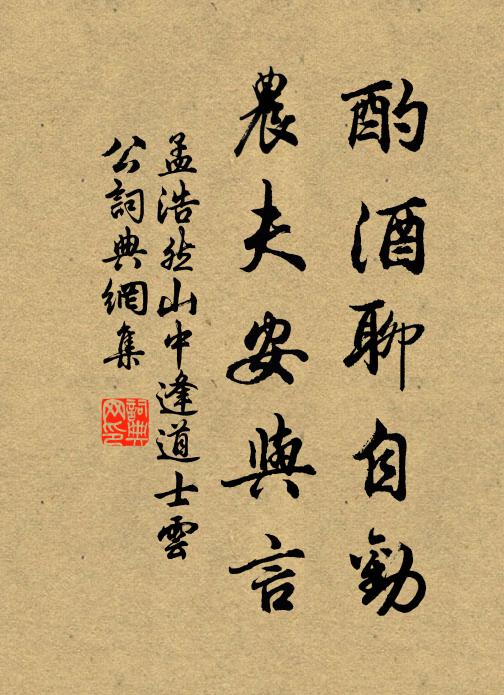 酌酒聊自勸
農夫安與言
孟浩然山中逢道士雲
公詞典網集
詞典
网印